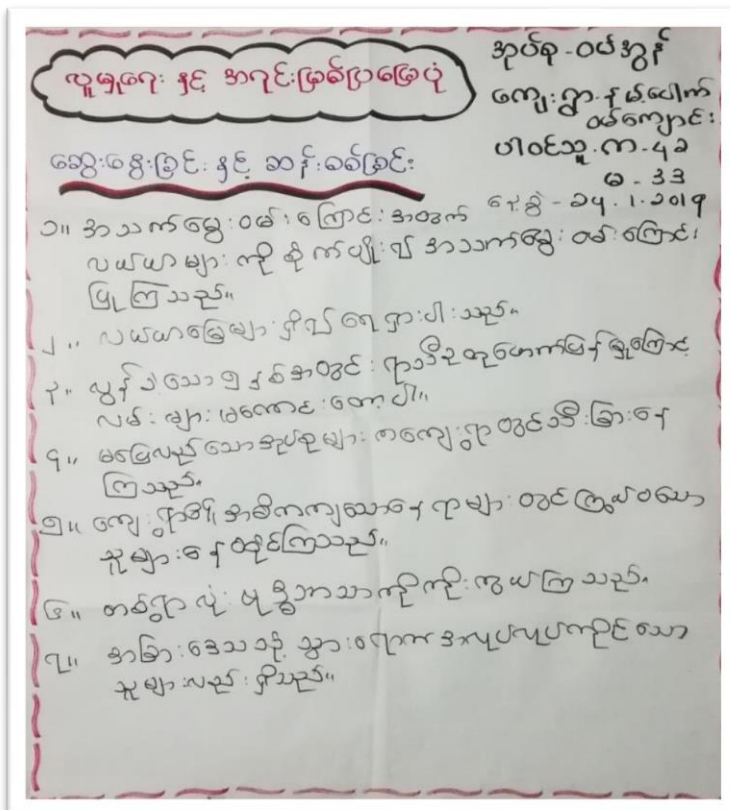 လူမှုရေး နှင့် အရင်းမြစ်ပြမြေပုံ
အုပ်စု - ဝပ်အွန်
ကျေးရွာ - နမ့်ပေါက်
ဝမ်ကျောင်း
ပါဝင်သူ - ကျ - ၄၁
မ - ၃၃
နေ့စွဲ - ၁၅.၁.၂၀၁၇
ဆွေးနွေးခြင်း နှင့် ဆန်းစစ်ခြင်း
၁။ အသက်မွေးဝမ်းကြောင်းအတွက်
လယ်ယာများကို စိုက်ပျိုး၍ အသက်မွေးဝမ်းကြောင်း
ပြုကြသည်။
၂။ လယ်ယာမြေများရှိ၍ ရေရှားပါးသည်။
၃။ လွန်ခဲ့သော ၅ နှစ်အတွင်း ရာသီဥတုဖောက်ပြန်မှုကြောင့်
လမ်းများမကောင်းတော့ပါ။
၄။ မပြေလည်သောအုပ်စုများ တကျေးရွာတွင်သီးခြားနေ
ကြသည်။
၅။ ကျေးရွာ၏ အဓိကကျသောနေရာများတွင်ကြွယ်ဝသော
သူများနေထိုင်ကြသည်။
၆။ တစ်ရွာလုံး ဗုဒ္ဓဘာသာကိုကိုးကွယ်ကြသည်။
၇။ အခြားဒေသသို့ သွားရောက်အလုပ်လုပ်ကိုင်သော
သူများလည်းရှိသည်။